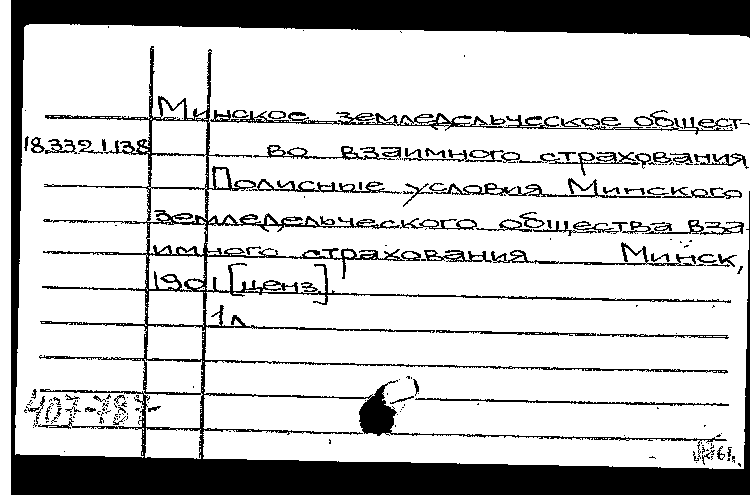 Минское земледельческое общест-
18.332.1.138 во взаимного страхования
Полисные условия Минского
земледельческого общества вза
имного страхования Минск,
1901 [ценз.]
1 л.
407-787-